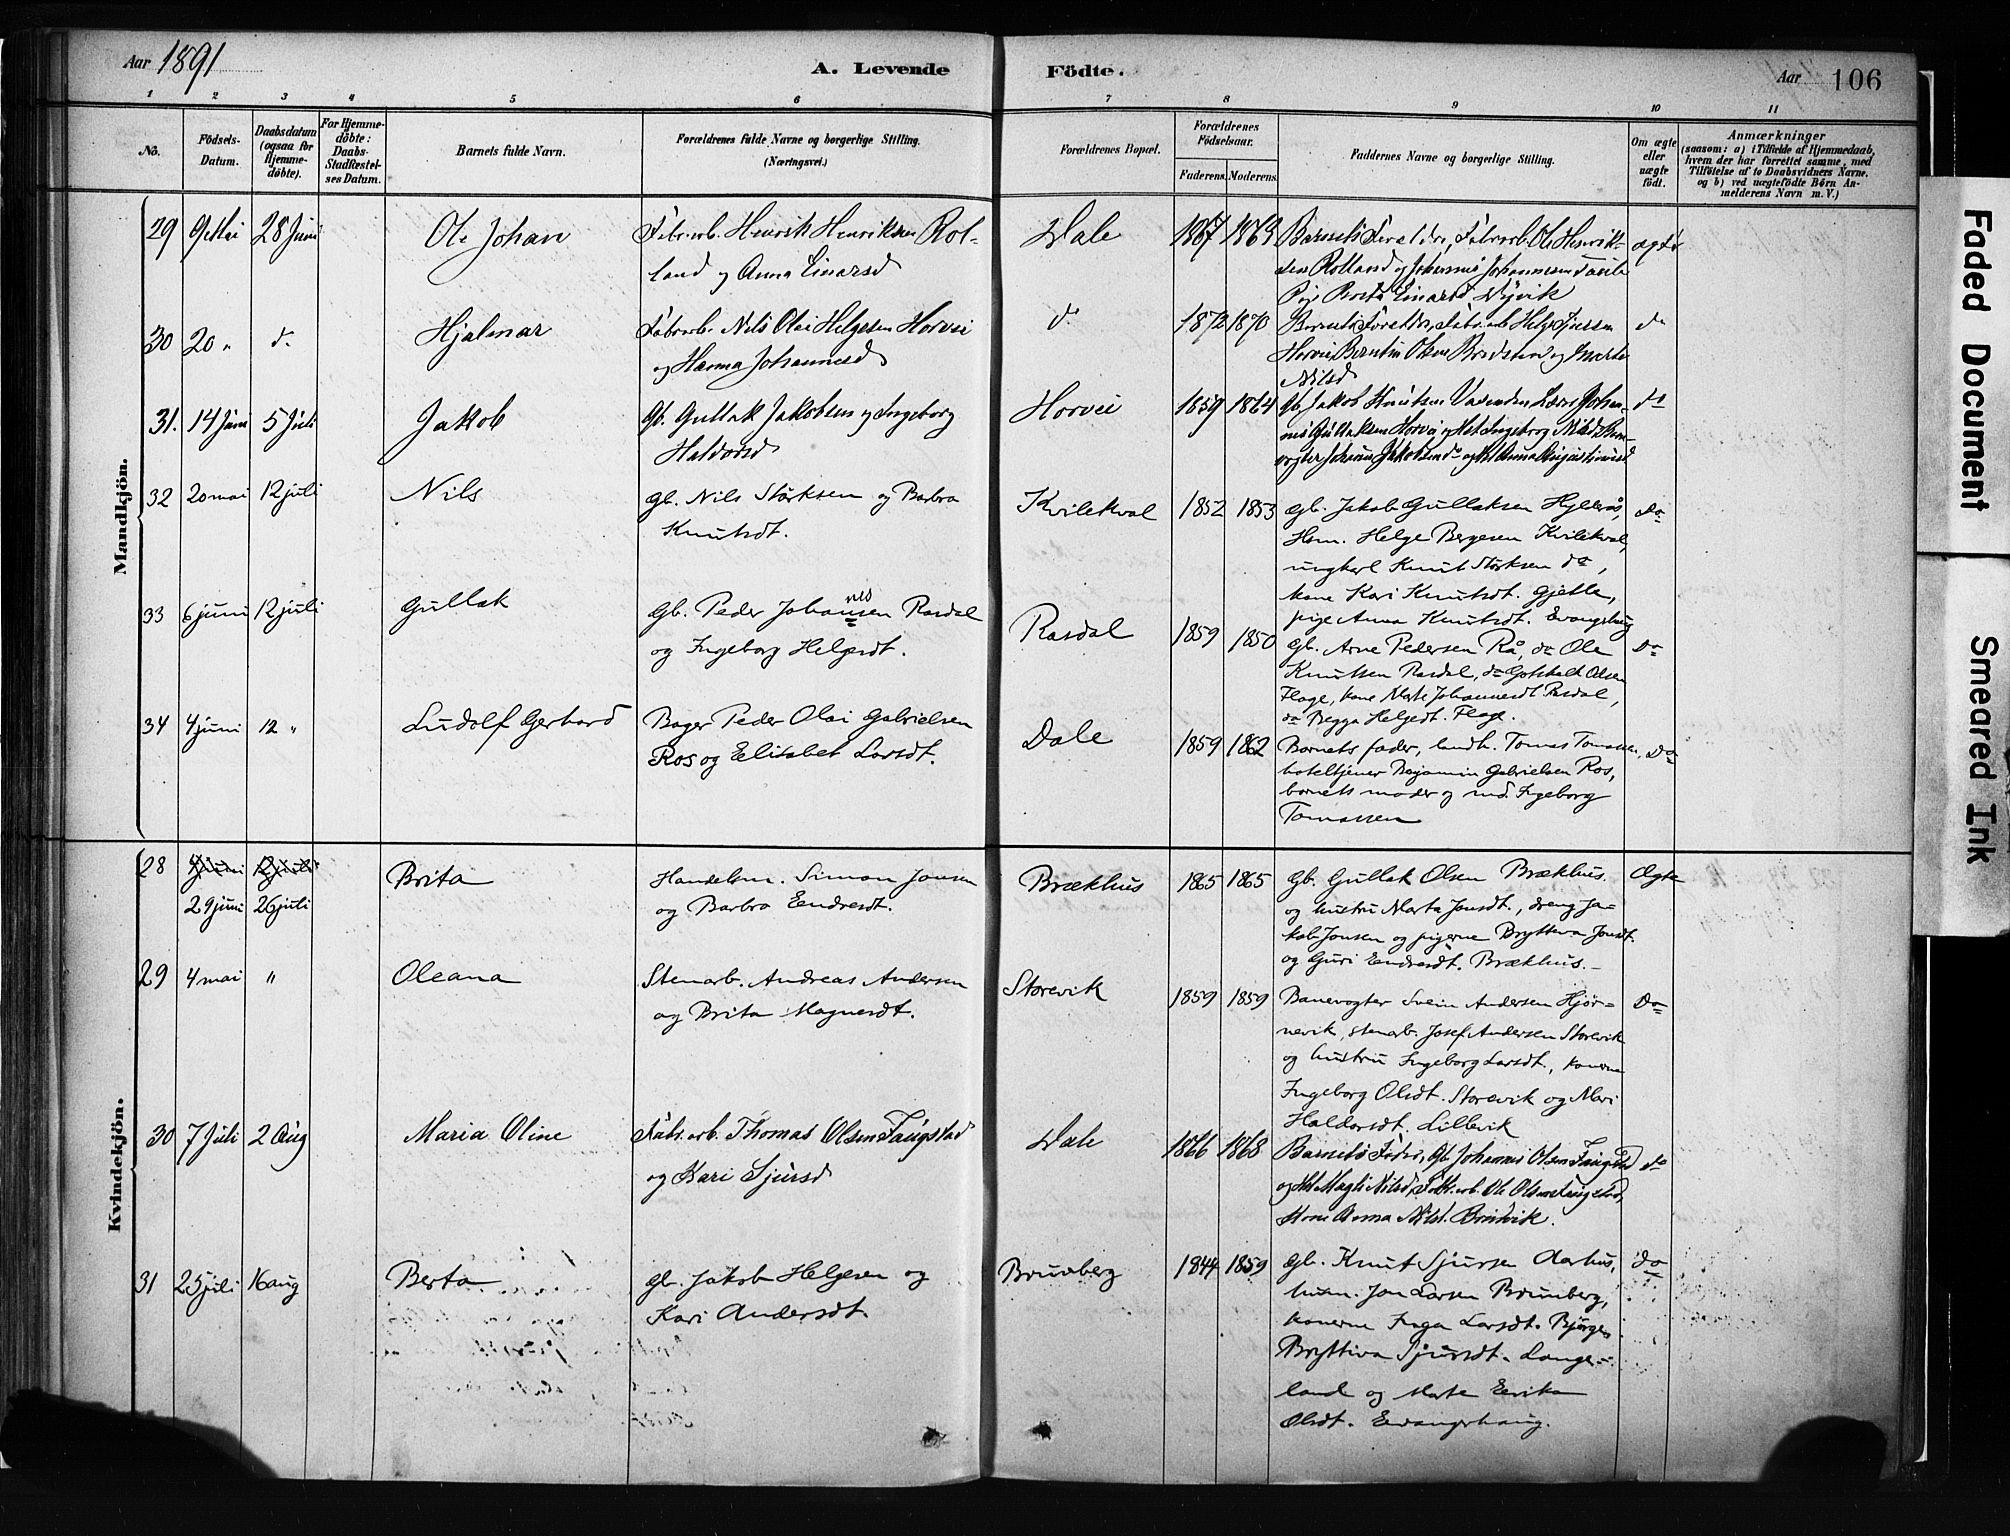 Aar 1891
A. Levende
Födte.
Aar 106
1 2 3 4 5 6 7 8 9 10 11
No.
Födsels-Datum.
Daabsdatum (ogsaa for Hjemme-döbte).
For Hjemme-döbte: Daabs-Stadfæstel-ses Datum.
Barnets fulde Navn.
Forældrenes fulde Navne og borgerlige Stilling.
(Næringsvei.)
Forældrenes Bopæl.
Forældrenes Födselsaar.
Faderens. Moderens.
Faddernes Navne og borgerlige Stilling.
Om ægte eller uægte födt.
Anmærkninger
(saasom: a) i Tilfælde af Hjemmedaab,
hvem der har forrettet samme, med
Tilföielse af to Daabsvidners Navne.
og b) ved uægtefödte Börn An-
melderens Navn m. V.)
Mandkjön.
29 9 Mai 28 Juni Ole Johan
Fabr.arb. Henrik Henriksen Rol-
land og Anna Einarsd
Dale 1867 1863
Barnets Foreldre, Fabr.arb. Ole Henrik-
sen Rolland og Johannes Johannessen
Pige Einarsd
ægte
30 20 " do Hjalmar
Fabr.arb. Nils Olai Helgesen Horvei
og Hanna Johannesd
do 1872 1870
Barnets Foreldre, Fabr.arb. Helge
Horvei, Olsen og Marta
Nilsd
do
31. 14 Juni 5 Juli Jakob
Gb. Gullak Jakobsen og Ingeborg
Haldorsd
Horvei 1859 1864
Gb. Jakob Knutsen Lærer Johan-
nes Gullaksen Horvei og Ingeborg Nilsd
Jakobsen do og Anna
do
32 20 mai 12 juli Nils
Gb. Nils Störksen og Barbra
Knutsdt.
Kvilekval 1852 1853
Gb. Jakob Gullaksen
Hsm. Helge Bergesen Kvilekval,
ungkarl Knut Störksen do,
kone Kari Knutsdt. Gjelle,
pige Anna Knutsdt. Evangshaug
do
33 6 juni 12 juli Gullak
Gb. Peder Johannesen Rasdal
og Ingeborg Helgesdt.
Rasdal 1859 1850
Gb. Arne Pedersen Rå, do Ole
Knutsen Rasdal, do Gotskalk Olsen
Flage, kone Marta Johannesdt Rasdal,
do Begga Helgedt. Flage.
Do
34 4 juni 12 " Ludolf Gerhard
Bager Peder Olai Gabrielsen
Ros og Elisabet Larsdt.
Dale 1859 1862
Barnets fader, landh. Tomas Tomassen,
hoteltjener Benjamin Gabrielsen Ros,
barnets moder og md. Ingeborg
Tomassen
Do
Kvindekjön.
28 4 juni 12 juli
29 juni 26 juli Brita
Handelsm. Simon Jonsen
og Barbra Eendresdt.
Brækhus 1865 1865
Gb. Gullak Olsen Brækhus
og hustru Marta Jonsdt., dreng Ja-
kob Jonsen og pigerne Brytteva Jonsdt.
og Guri Eendresdt. Brækhus.
Ægte
29 4 mai " Oleana
Stenarb. Andreas Andersen
og Brita Magnesdt.
Storevik 1859 1859
Banevogter Svein Andersen Hjör-
nevik, stenarb. Josef Andersen Storevik
og hustru Ingeborg Larsdt., konerne
Ingeborg Olsdt. Storevik og Mari
Haldorsdt. Lillevik
Do
30 7 Juli 2 Aug Maria Oline
Fabr.arb. Thomas Olsen Faugstad
og Kari Sjursd
Dale 1866 1868
Barnets Fader, Gb Johannes Olsen Faugstad
og Magli Nilsd, Fabr.arb. Ole Olsen Faugstad
Kone Anna Nilsd.
do
31 25 juli 16 aug Berta
Gb. Jakob Helgesen og
Kari Andersdt.
Brunberg 1844 1859
Gb. Knut Sjursen Aarhus,
husm. Jon Larsen Brunberg,
konerne Inga Larsdt. Bjørge,
Bryttiva Sjursdt. Lange-
land og Marta Eerika
Olsdt. Eevangershaug.
do
Faded Document
Smeared Ink